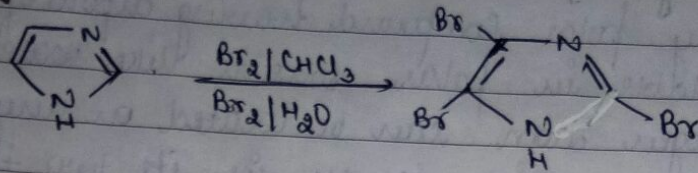 Br
N
N
H
Br₂/CHCl₃
Br₂/H₂O
N
Br
N
H
Br